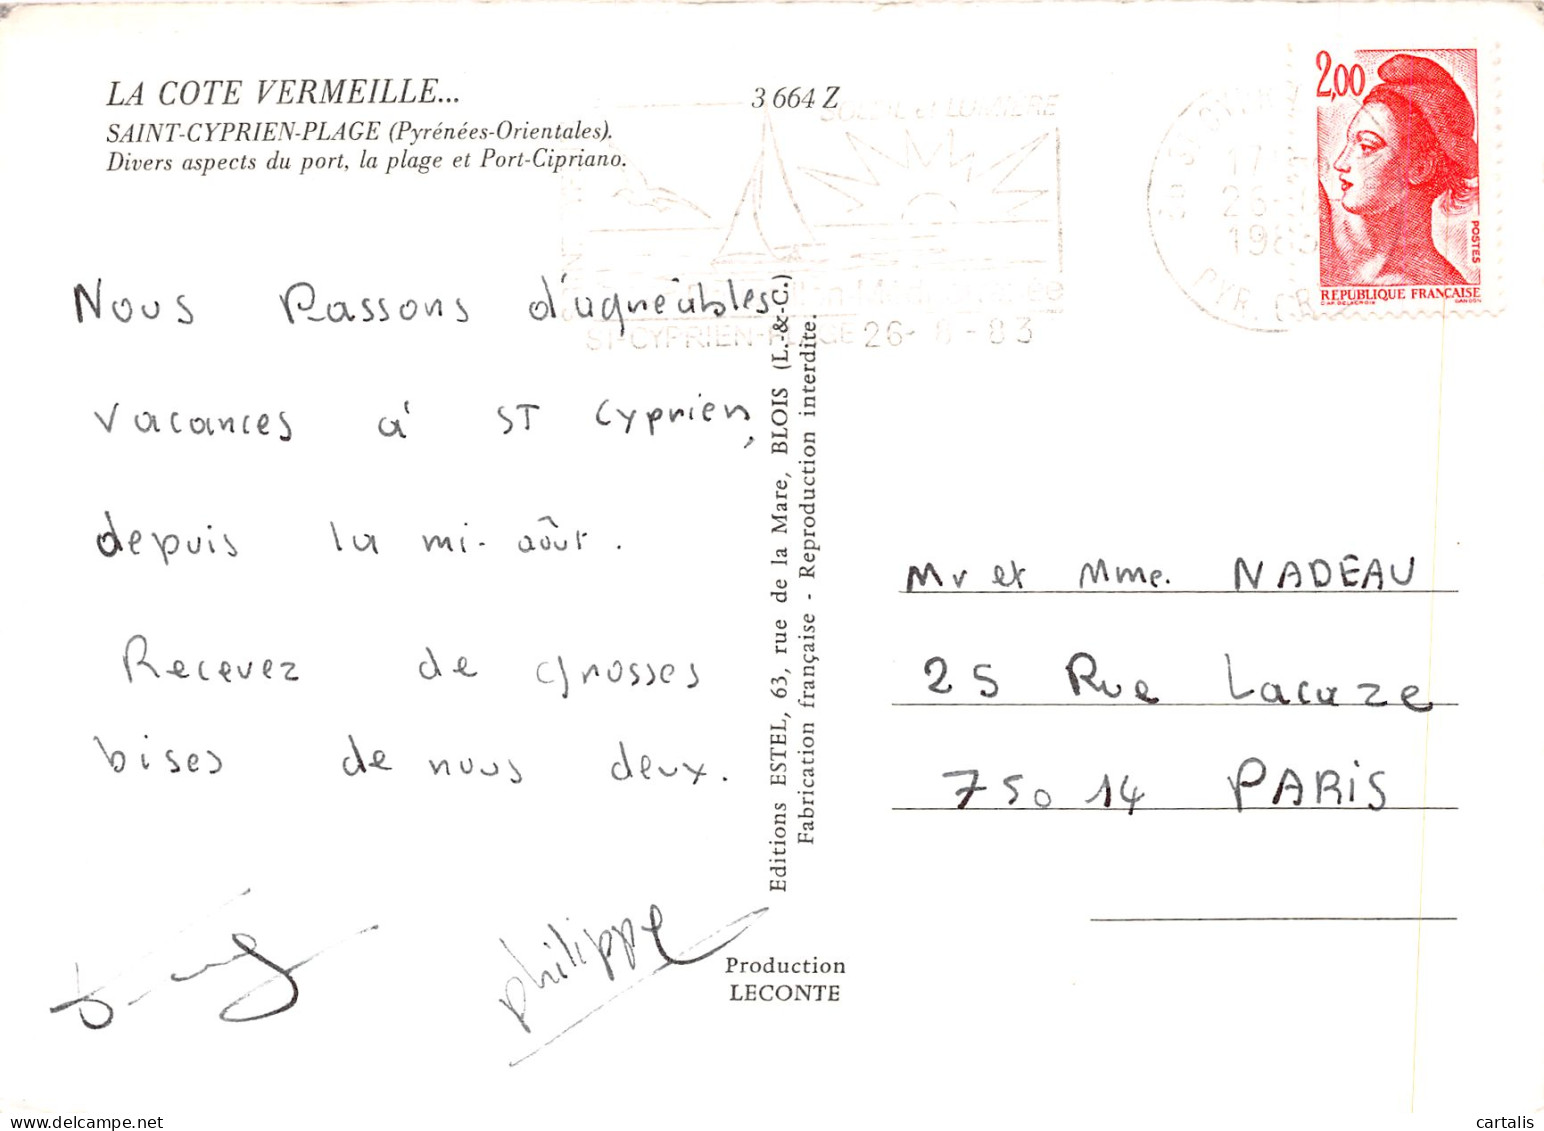 LA COTE VERMEILLE...
SAINT-CYPRIEN-PLAGE (Pyrénées-Orientales).
Divers aspects du port, la plage et Port-Cipriano.
3 664 Z
SOLEIL et LUMIERE
ST-CYPRIEN-PLAGE 26- 8 -83
2,00
POSTES
REPUBLIQUE FRANÇAISE
Nous Passons d'agréables
vacances à ST Cyprien,
depuis la mi-août.
Recevez de grosses
bises de nous deux.
Philippe
Editions ESTEL, 63, rue de la Mare, BLOIS (L.-&-C.)
Fabrication française - Reproduction interdite.
Production
LECONTE
Mr et Mme. NADEAU
25 Rue Lacaze
75014 PARIS
cartalis